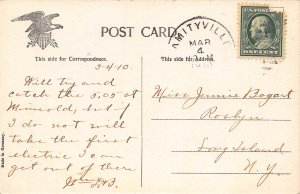 POST CARD
This side for Correspondence.
This side for Address.
AMITYVILLE
MAR
4
U.S. POSTAGE
ONE CENT
3-4-10.
Will try and
catch the 5,05 at
Mineola, but if
I do not will
take the first
electric I can
get out of there
Miss Jennie Bogart
Roslyn
Long Island
N.Y.
Made in Germany.